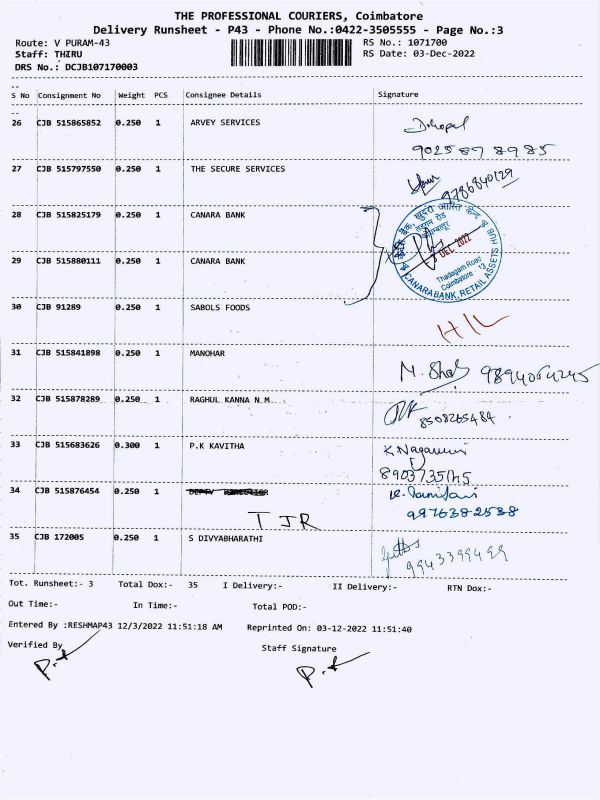 THE PROFESSIONAL COURIERS, Coimbatore
Delivery Runsheet - P43 - Phone No.:0422-3505555 - Page No.:3
Route: V PURAM-43 RS No.: 1071700
Staff: THIRU RS Date: 03-Dec-2022
DRS No.: DCJB107170003
S No Consignment No Weight PCS Consignee Details Signature
26 CJB 515865852 0.250 1 ARVEY SERVICES
9025898985
27 CJB 515797550 0.250 1 THE SECURE SERVICES
9786840129
28 CJB 515825179 0.250 1 CANARA BANK
DEC 2022
Thadagam Road
Coimbatore - 13
CANARA BANK, RETAIL ASSETS HUB
29 CJB 515880111 0.250 1 CANARA BANK
30 CJB 91289 0.250 1 SABOLS FOODS
31 CJB 515841898 0.250 1 MANOHAR
9894064245
32 CJB 515878289 0.250 1 RAGHUL KANNA N.M
8508265484
33 CJB 515683626 0.300 1 P.K KAVITHA
34 CJB 515876454 0.250 1
TJR
9976382538
35 CJB 172005 0.250 1 S DIVYABHARATHI
9943399499
Tot. Runsheet:- 3 Total Dox:- 35 I Delivery:- II Delivery:- RTN Dox:-
Out Time:- In Time:- Total POD:-
Entered By :RESHMAP43 12/3/2022 11:51:18 AM Reprinted On: 03-12-2022 11:51:40
Verified By Staff Signature